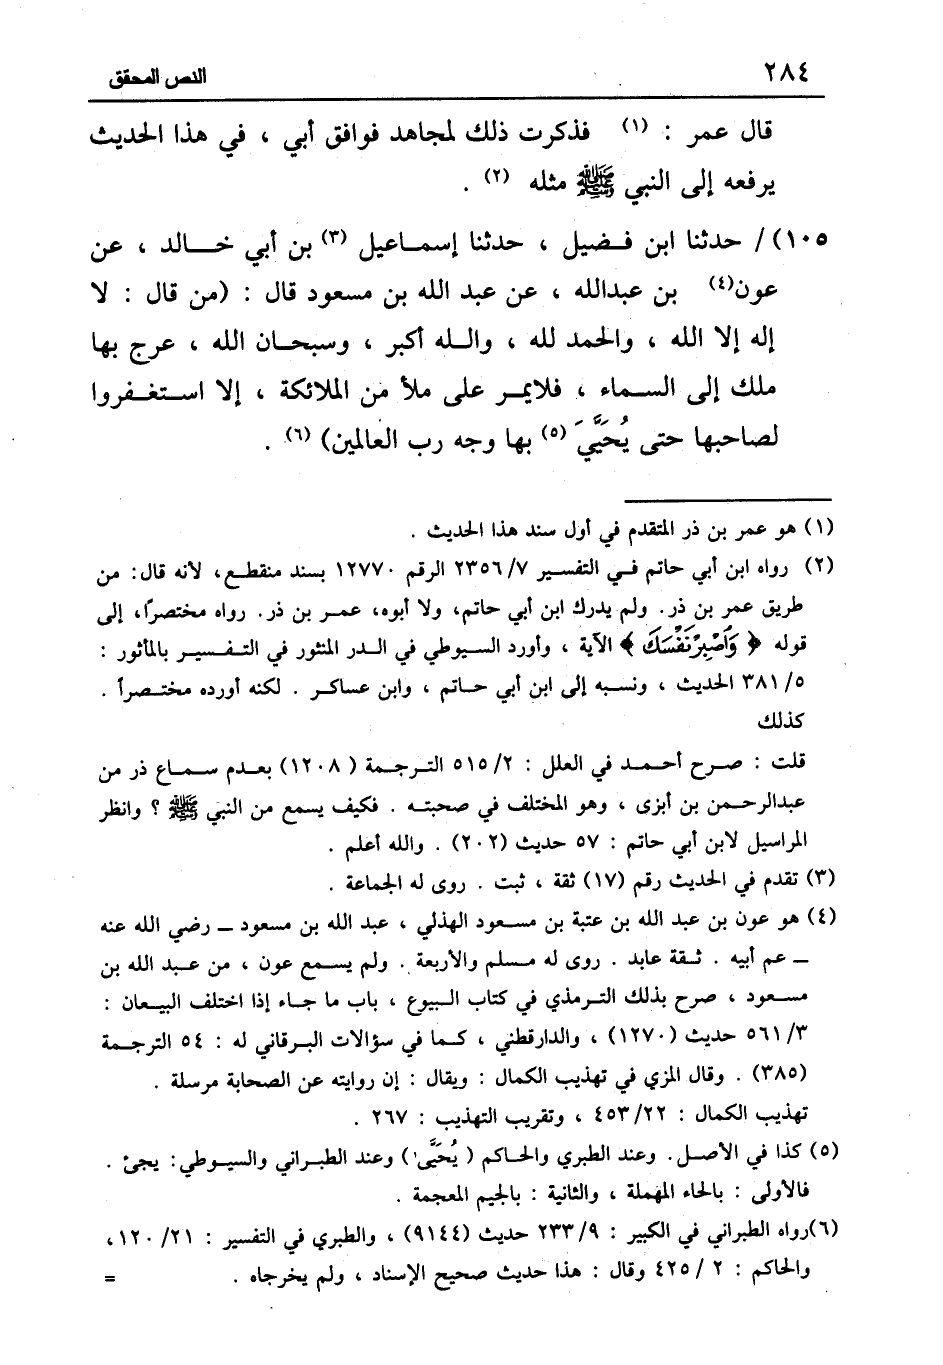 ٢٨٤
النص المحقق
قال عمر : (١) فذكرت ذلك لمجاهد فوافق أبي ، في هذا الحديث
يرفعه إلى النبي ﷺ مثله (٢) .
١٠٥)/ حدثنا ابن فـضيل ، حدثنا إسـماعيل (٣) بن أبي خـــالد ، عن
عون(٤) بن عبدالله ، عن عبد الله بن مسعود قال : (من قال : لا
إله إلا الله ، والحمد لله ، والـله أكبر ، وسبحـان الله ، عرج بها
ملك إلى السـماء ، فلايمـر على ملأ من الملائكة ، إلا استـغـفـروا
لصاحبها حتى يُحَيَّيَ (٥) بها وجه رب العالمين) (٦) .
(١) هو عمر بن ذر المتقدم في أول سند هذا الحديث .
(٢) رواه ابن أبي حاتم فـي التفسير ٢٣٥٦/٧ الرقم ١٢٧٧٠ بسند منقطـع، لأنه قال: من
طريق عمر بن ذر. ولم يدرك ابن أبي حاتم، ولا أبوه، عمـر بن ذر. رواه مختصرًا، إلى
قوله ﴿ وَاصْبِرْ نَفْسَكَ ﴾ الآية ، وأورد السـيوطي في الـدر المنثور في التـفـسيـر بالمأثور :
٣٨١/٥ الحديث ، ونسبه إلى ابن أبي حـاتم ، وابن عساكـر . لكنه أورده مختـصراً .
كذلك
قلت : صـرح أحمـد في العلل : ٥١٥/٢ التـرجـمة ( ١٢٠٨) بعـدم سمـاع ذر من
عبدالرحـمن بن أبزى ، وهو المختلف في صحبتـه . فكيف يسمع من النبي ﷺ ؟ وانظر
المراسيل لابن أبي حاتم : ٥٧ حديث (٢٠٢) . والله أعلم .
(٣) تقدم في الحديث رقم (١٧) ثقة ، ثبت . روى له الجماعة .
(٤) هو عون بن عبد الله بن عتبة بن مسعود الهذلي ، عبد الله بن مسعود ــ رضي الله عنه
ــ عم أبيه . ثـقة عابد . روى له مسلم والأربعة . ولم يسمع عون ، من عبـد الله بن
مسعود ، صرح بذلك التـرمذي في كتاب الـبيوع ، باب ما جـاء إذا اختلف البيـعان :
٥٦١/٣ حديث (١٢٧٠) ، والدارقطني ، كـما في سؤالات البـرقاني له : ٥٤ الترجـمة
(٣٨٥) . وقال المزي في تهذيب الكمال : ويقال : إن روايته عن الصحابة مرسلة .
تهذيب الكمال : ٤٥٣/٢٢ ، وتقريب التهذيب : ٢٦٧ .
(٥) كذا في الأصـل. وعند الطبري والحاكم ( يُحَيَّى) وعند الطبـراني والسـيوطي: يجئ .
فالأولى : بالحاء المهملة ، والثانية : بالجيم المعجمة .
(٦)رواه الطبراني في الكبير : ٢٣٣/٩ حديث (٩١٤٤) ، والطبري في التفسير : ١٢٠/٢١ ،
والحاكم : ٢ /٤٢٥ وقال : هذا حديث صحيح الإسناد ، ولم يخرجاه . =